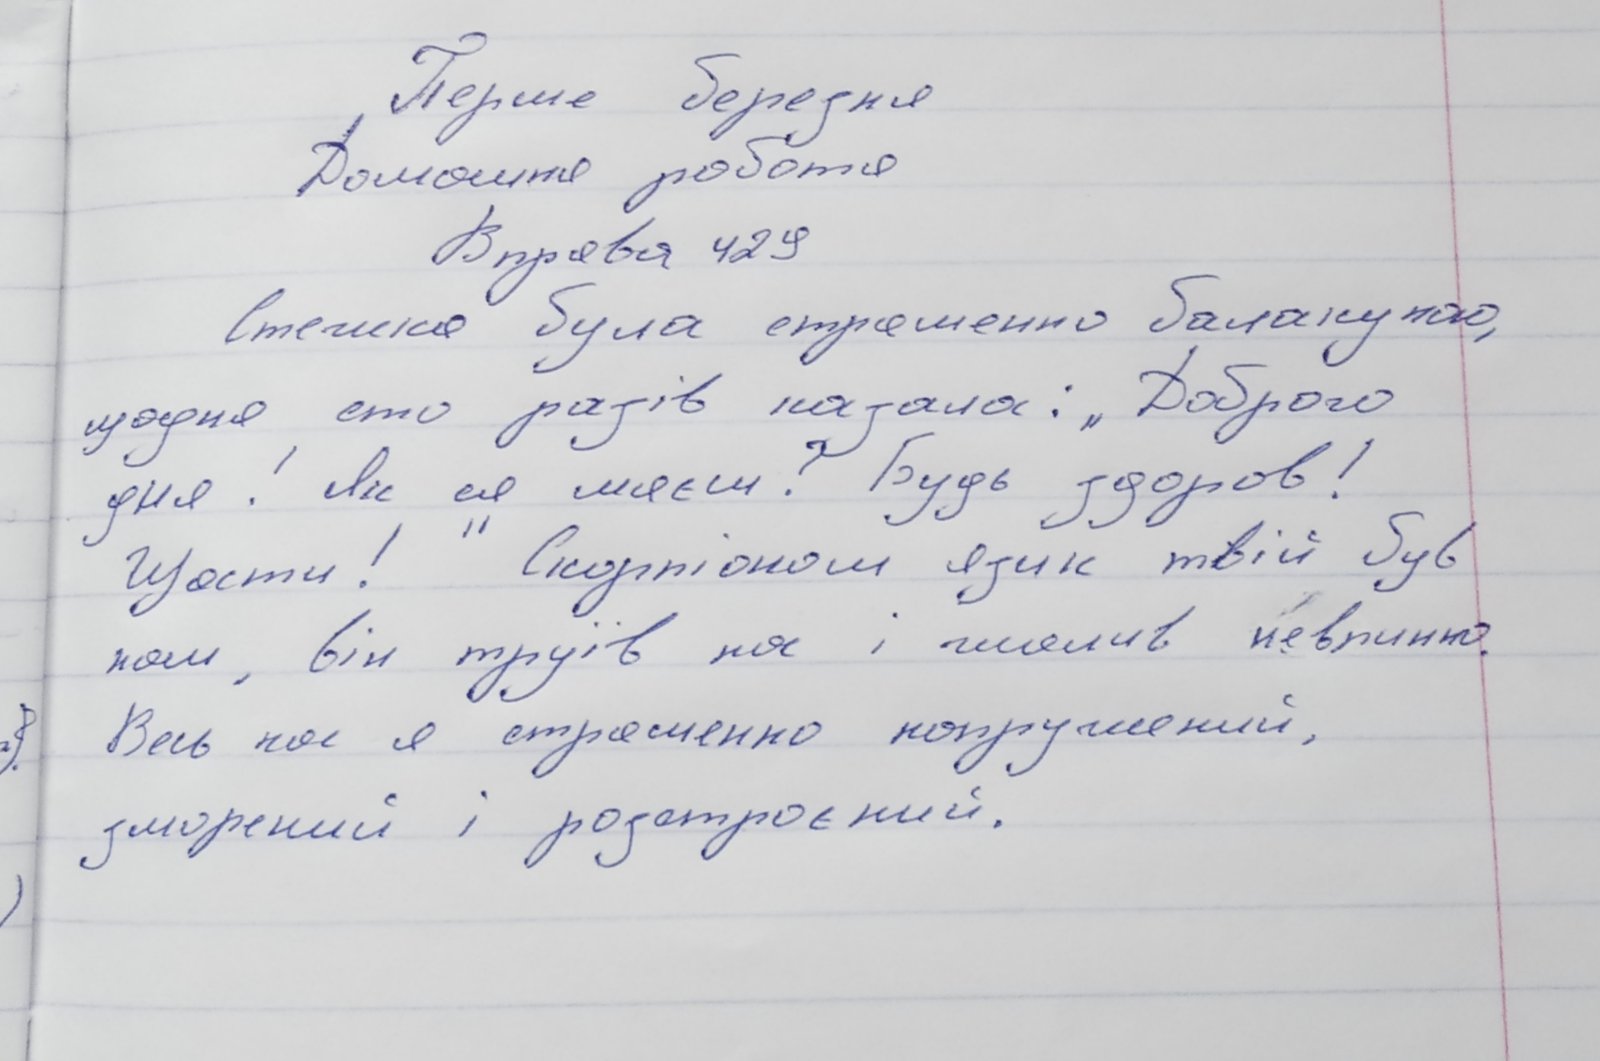 Перше березня
Домашня робота
Вправа 429
Стежка була страшенно балакучою,
щодня сто разів казала: „Доброго
дня! Як ся маєш? Будь здоров!
Щасти!" Скорпіоном язик твій був
нам, він труїв нас і жалив невпинно.
Весь час я страшенно напружений,
зморений і розстроєний.